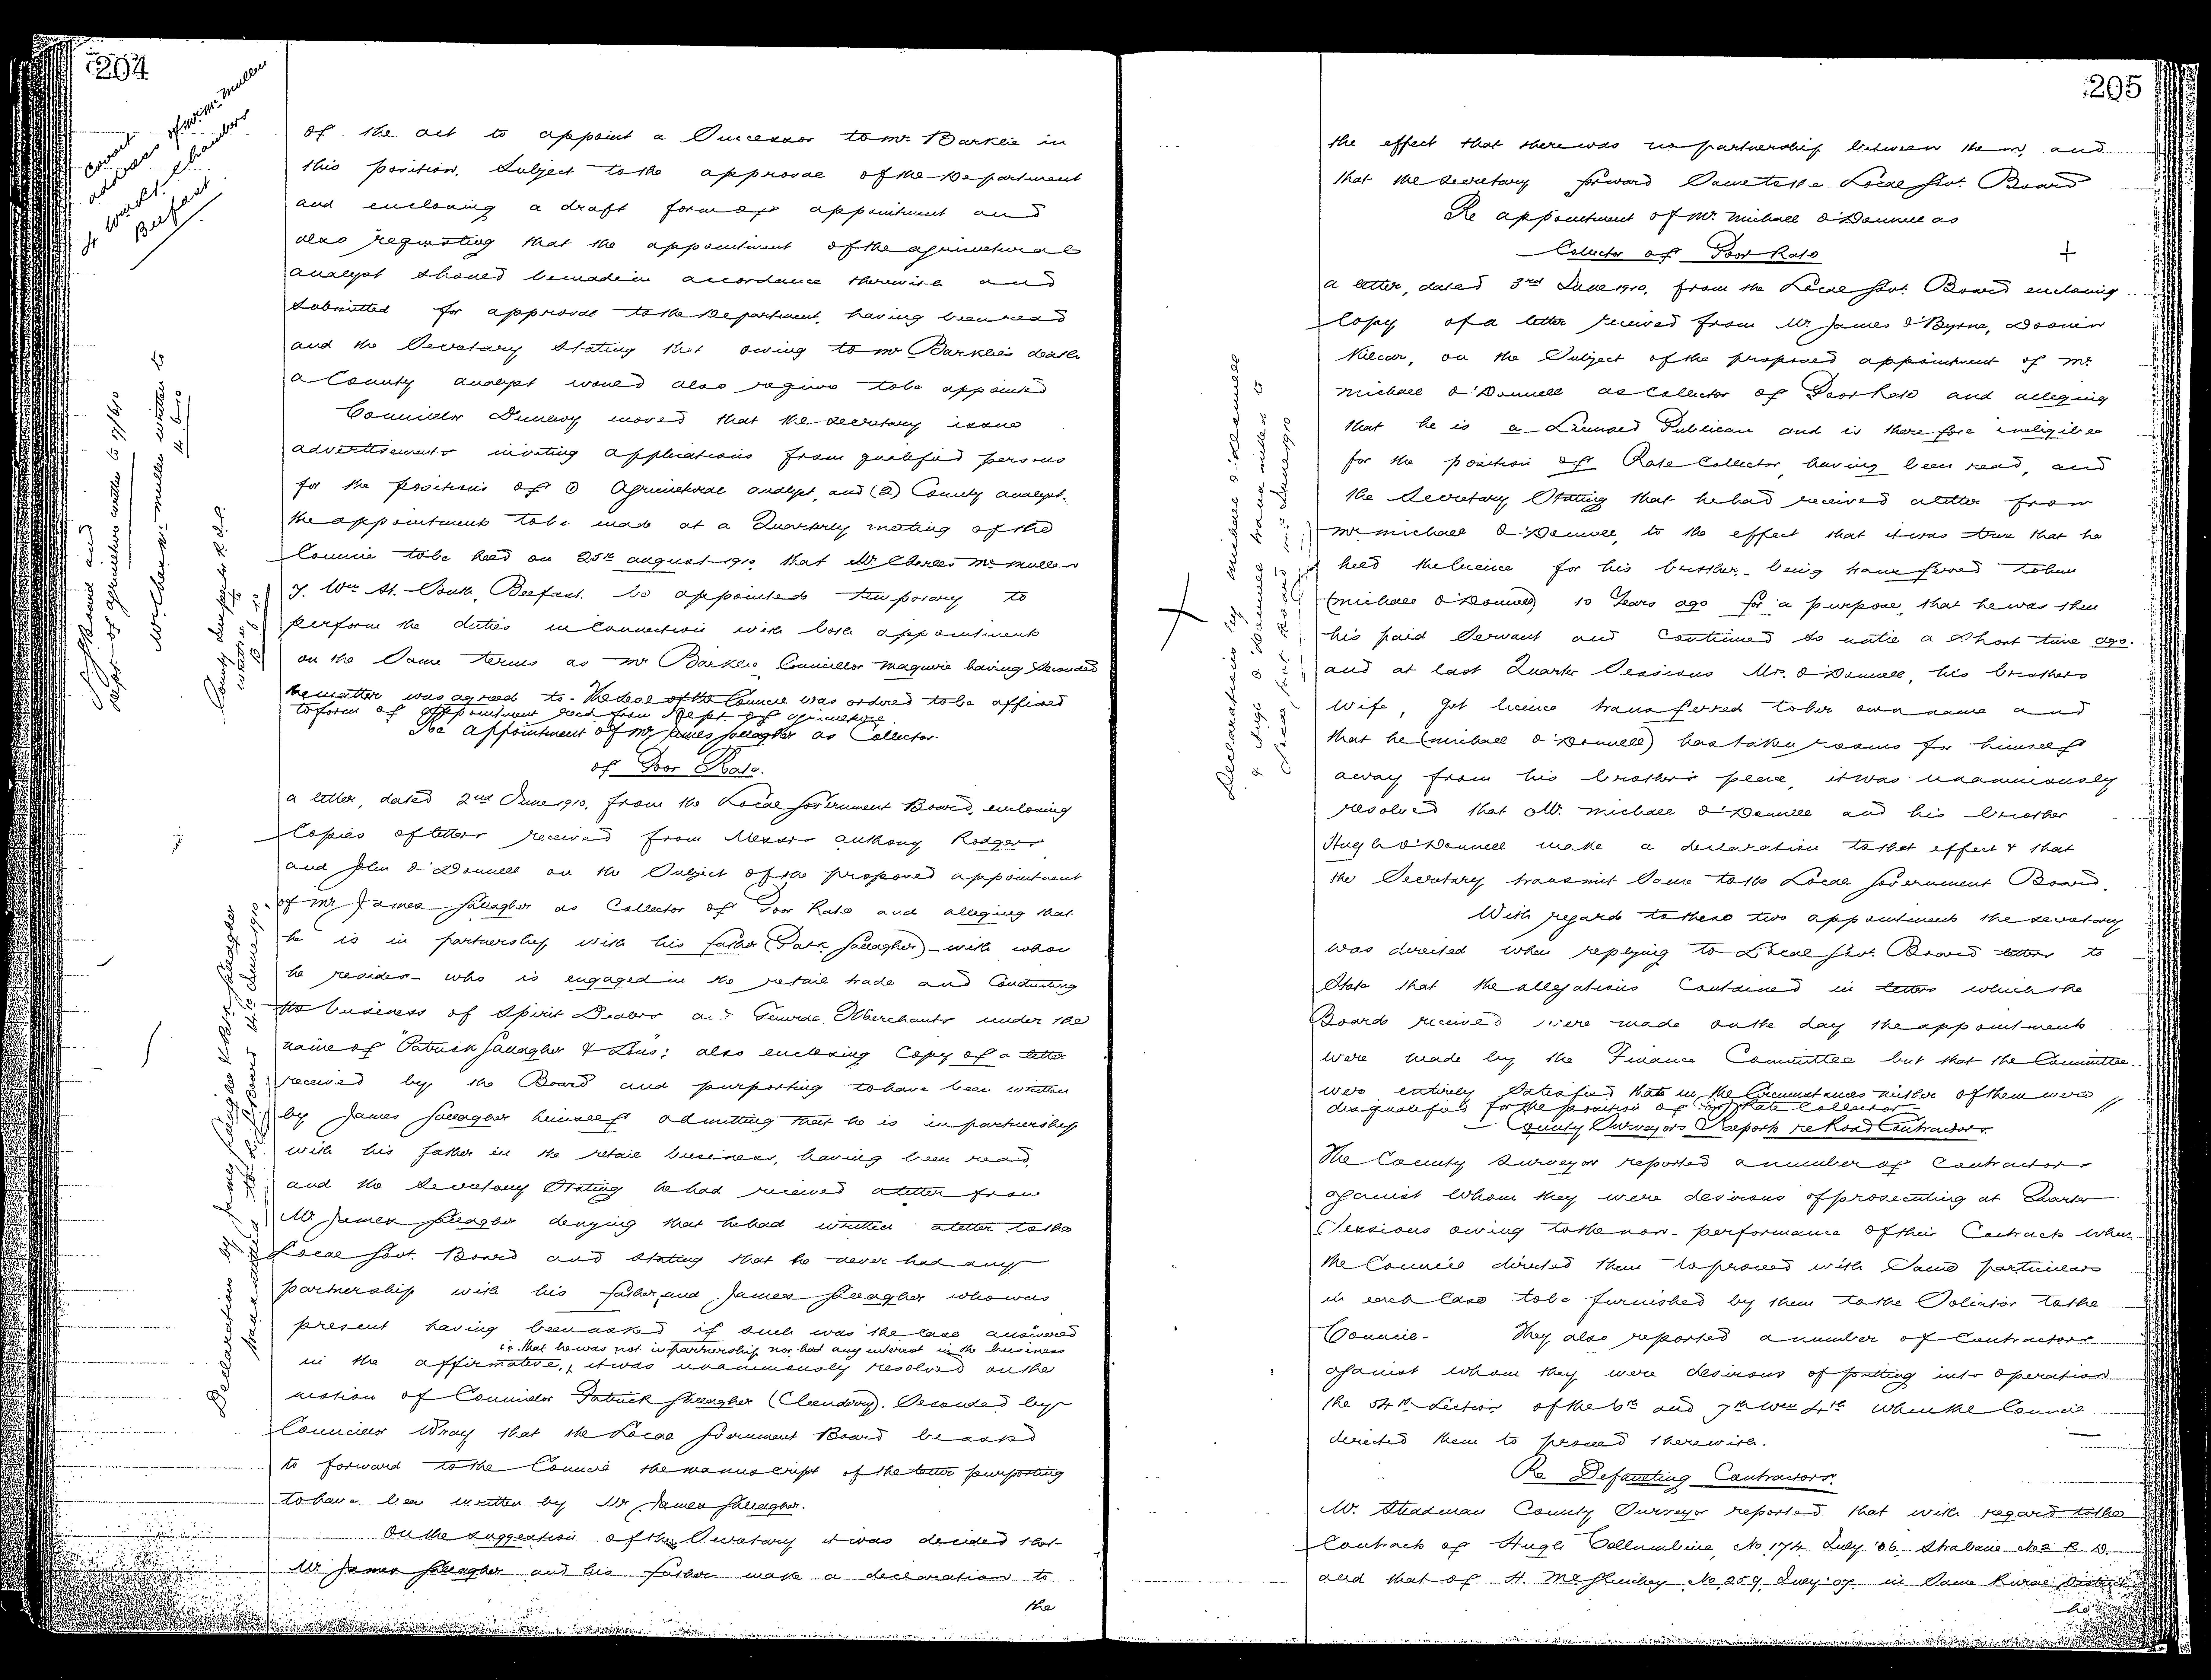 204
correct
address of Mr. McMullen
4 Waring St. Chambers
Belfast
of the act to appoint a Successor to Mr. Barklie in
this position, Subject to the approval of the Department
and enclosing a draft form of appointment and
also requesting that the appointment of the agricultural
analyst should be made in accordance therewith and
submitted for approval to the Department, having been read
and the Secretary stating that owing to Mr Barklie's death
a County analyst would also require to be appointed
Councillor Dunlevy moved that the secretary issue
advertisements inviting applications from qualified persons
for the positions of (1) Agricultural analyst, and (2) County analyst.
the appointments to be made at a Quarterly meeting of the
Council to be held on 25th august 1910 that Mr. Charles McMullen
7. Wm St. South, Belfast. be appointed temporary to
perform the duties in connection with both appointments
on the Same terms as Mr Barklie, Councillor Maguire having Seconded
the matter was agreed to - The Seal of the Council was ordered to be affixed
to form of appointment recd from Dept. of agriculture
Re appointment of Mr James Gallagher as Collector
of Poor Rate.
a letter, dated 2nd June 1910, from the Local Government Board, enclosing
Copies of letters received from Messrs Anthony Rodgers
and John O'Donnell on the Subject of the proposed appointment
of Mr James Gallagher as Collector of Poor Rate and alleging that
he is in partnership with his father (Patk. Gallagher) - with whom
he resides - who is engaged in the retail trade and Conducting
the business of Spirit Dealers and General Merchants under the
name of "Patrick Gallagher & Sons": also enclosing Copy of a letter
received by the Board and purporting to have been written
by James Gallagher himself admitting that he is in partnership
with his father in the retail business, having been read,
and the Secretary Stating he had received a letter from
Mr James Gallagher denying that he had written a letter to the
Local Govt. Board and stating that he never had any
partnership with his father, and James Gallagher who was
present having been asked if such was the case answered
i.e. that he was not in partnership nor had any interest in the business
in the affirmative, it was unanimously resolved on the
motion of Councillor Patrick Gallagher (Cleendra). Seconded by
Councillor Wray that the Local Government Board be asked
to forward to the Council the manuscript of the letter purporting
to have been written by Mr James Gallagher.
On the suggestion of the Secretary it was decided that
Mr James Gallagher and his father make a declaration to
the
Mr. Chas. McMullen written to
14.6.10
Dept. of agriculture written to 17/6/10
Declaration by James Gallagher & Patk. Gallagher
transmitted to L. G. Board 14th June 1910.
205
the effect that there was no partnership between them, and
that the Secretary forward Same to the Local Govt. Board
Re appointment of Mr. Michael O'Donnell as
Collector of Poor Rate
a letter, dated 3rd June 1910, from the Local Govt. Board enclosing
Copy of a letter received from Mr. James O'Byrne,
Kilcar, on the Subject of the proposed appointment of Mr.
Michael O'Donnell as Collector of Poor Rate and alleging
that he is a Licensed Publican and is therefore ineligible
for the position of Rate Collector, having been read, and
the Secretary Stating that he had received a letter from
Mr Michael O'Donnell, to the effect that it was true that he
held the licence for his brother - being transferred to him
(Michael O'Donnell) 10 Years ago for a purpose, that he was then
his paid Servant and continued so until a Short time ago.
and at last Quarter Sessions Mr. O'Donnell, his brothers
wife, got licence transferred to her own name and
that he (Michael O'Donnell) has taken rooms for himself
away from his brother's place, it was unanimously
resolved that Mr. Michael O'Donnell and his brother
Hugh O'Donnell make a declaration to that effect & that
the Secretary transmit Same to the Local Government Board.
With regard to these two appointments the secretary
was directed when replying to Local Govt. Board letters to
State that the allegations Contained in letters which the
Board received were made on the day the appointments
were made by the Finance Committee but that the Committee
were entirely Satisfied that in the Circumstances neither of them were
disqualified for the position of Poor Rate Collector
County Surveyors Reports re Road Contractors.
The County Surveyor reported a number of Contractors
against whom they were desirous of prosecuting at Quarter
Sessions owing to the non-performance of their Contracts when
the Council directed them to proceed with Same particulars
in each Case to be furnished by them to the Solicitor to the
Council. They also reported a number of Contractors
against whom they were desirous of putting into operation
the 54th Section of the 6th and 7th Wm 4th when the Council
directed them to proceed therewith.
Re Defaulting Contractors.
Mr. Steadman County Surveyor reported that with regard to the
Contract of Hugh Collumbine, No. 174 July '06. Strabane No 2 R. D.
and that of H. McGlinchey No. 259. July '07 in Same Rural District
he
Declaration by Michael O'Donnell
& Hugh O'Donnell transmitted to
Local Govt Board 14th June 1910